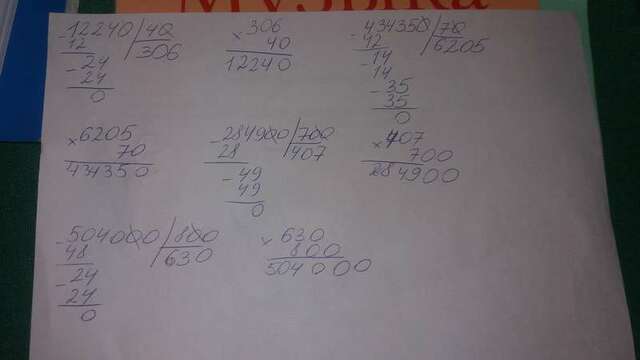 Музыка
12240 / 40
12 306
- 24
24
0
× 306
40
12240
- 434350 / 70
42 6205
- 14
14
- 35
35
0
× 6205
70
434350
- 284900 / 700
28 407
- 49
49
0
× 407
700
284900
- 504000 / 800
48 630
- 24
24
0
× 630
800
504000